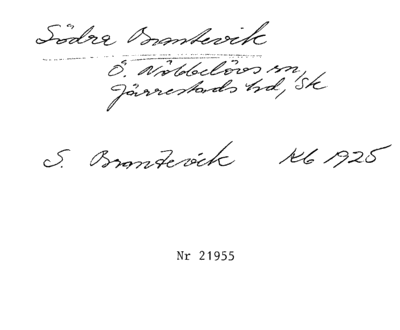 Södra Brantevik
Ö. Nöbbelövs sn,
Järrestads hd, Sk
S. Brantevik Kb 1925
Nr 21955